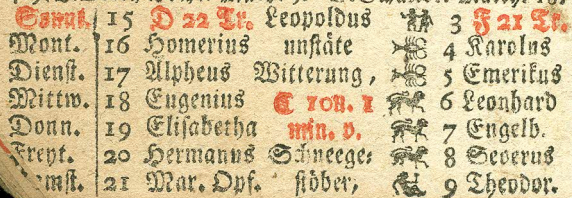 Sonnt. 15 D 22 Tr. Leopoldus 3 F 21 Tr.
Mont. 16 Homerius unstäte 4 Karolus
Dienst. 17 Alpheus Witterung, 5 Emerikus
Mittw. 18 Eugenius C 10u. 1 6 Leonhard
Donn. 19 Elisabetha min. v. 7 Engelb.
Freyt. 20 Hermanus Schneege: 8 Severus
21 Mar. Opf. stöber, 9 Theodor.